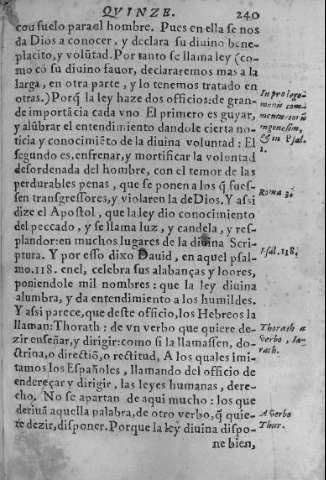 QVINZE. 240
cõsuelo para el hombre. Pues en ella se nos
da Dios a conocer, y declara su diuino bene-
placito, y volũtad. Por tanto se llama ley (co-
mo cõ su diuino fauor, declararemos mas a la
larga, en otra parte, y lo tenemos tratado en
otras.) Porq̃ la ley haze dos officios: de gran-
de importãcia cada vno El primero es guyar,
y alũbrar el entendimiento dandole cierta no-
ticia y conocimiẽto de la diuina voluntad: El
segundo es, enfrenar, y mortificar la voluntad
desordenada del hombre, con el temor de las
perdurables penas, que se ponen a los q̃ fues-
sen transgressores, y violaren la de Dios. Y assi
dize el Apostol, que la ley dio conocimiento
del peccado, y se llama luz, y candela, y res-
plandor: en muchos lugares de la diuina Scri-
ptura. Y por esso dixo Dauid, en aquel psal-
mo. 118. enel, celebra sus alabanças y loores,
poniendole mil nombres: que la ley diuina
alumbra, y da entendimiento a los humildes.
Y assi parece, que deste officio, los Hebreos la
llaman: Thorath: de vn verbo que quiere de-
zir enseñar, y dirigir: como si la llamassen, do-
ctrina, o directiõ, o rectitud, A los quales imi-
tamos los Españoles, llamando del officio de
endereçar y dirigir, las leyes humanas, dere-
cho. No se apartan de aqui mucho: los que
deriuã aquella palabra, de otro verbo, q̃ quie-
re dezir, disponer. Porque la ley diuina dispo-
ne bien,
In prologo
&in Psal.
1.
Roma 3.
Psal. 118.
Thorath a
verbo, Ia-
rath.
A verbo
Thur.